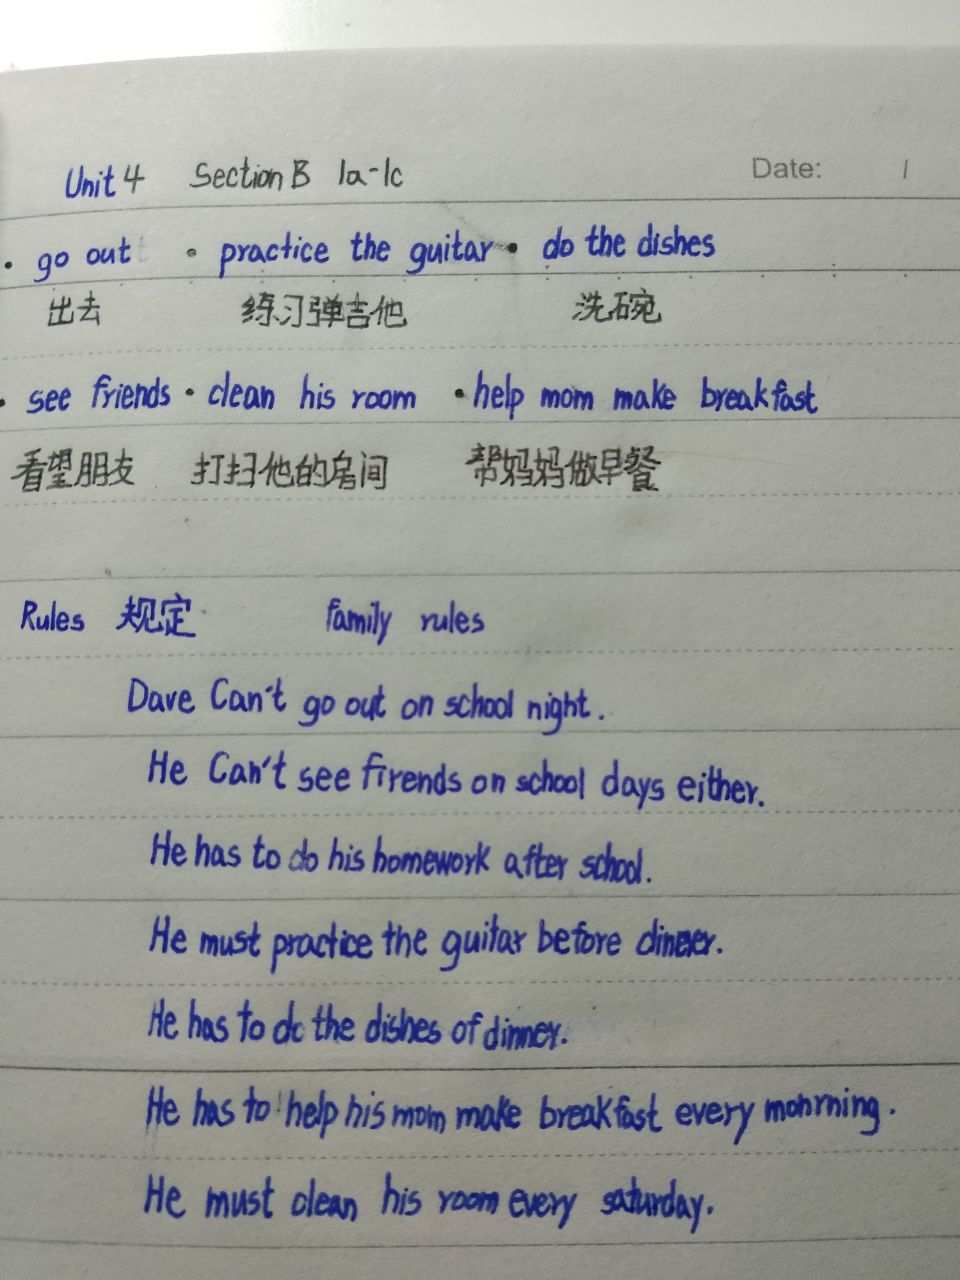 Unit 4 Section B 1a-1c Date: /
• go out • practice the guitar • do the dishes
出去 练习弹吉他 洗碗
• see friends • clean his room • help mom make breakfast
看望朋友 打扫他的房间 帮妈妈做早餐
Rules 规定 family rules
Dave Can't go out on school night.
He Can't see firends on school days either.
He has to do his homework after school.
He must practice the guitar before dinner.
He has to do the dishes of dinner.
He has to help his mom make breakfast every monrning.
He must clean his room every saturday.